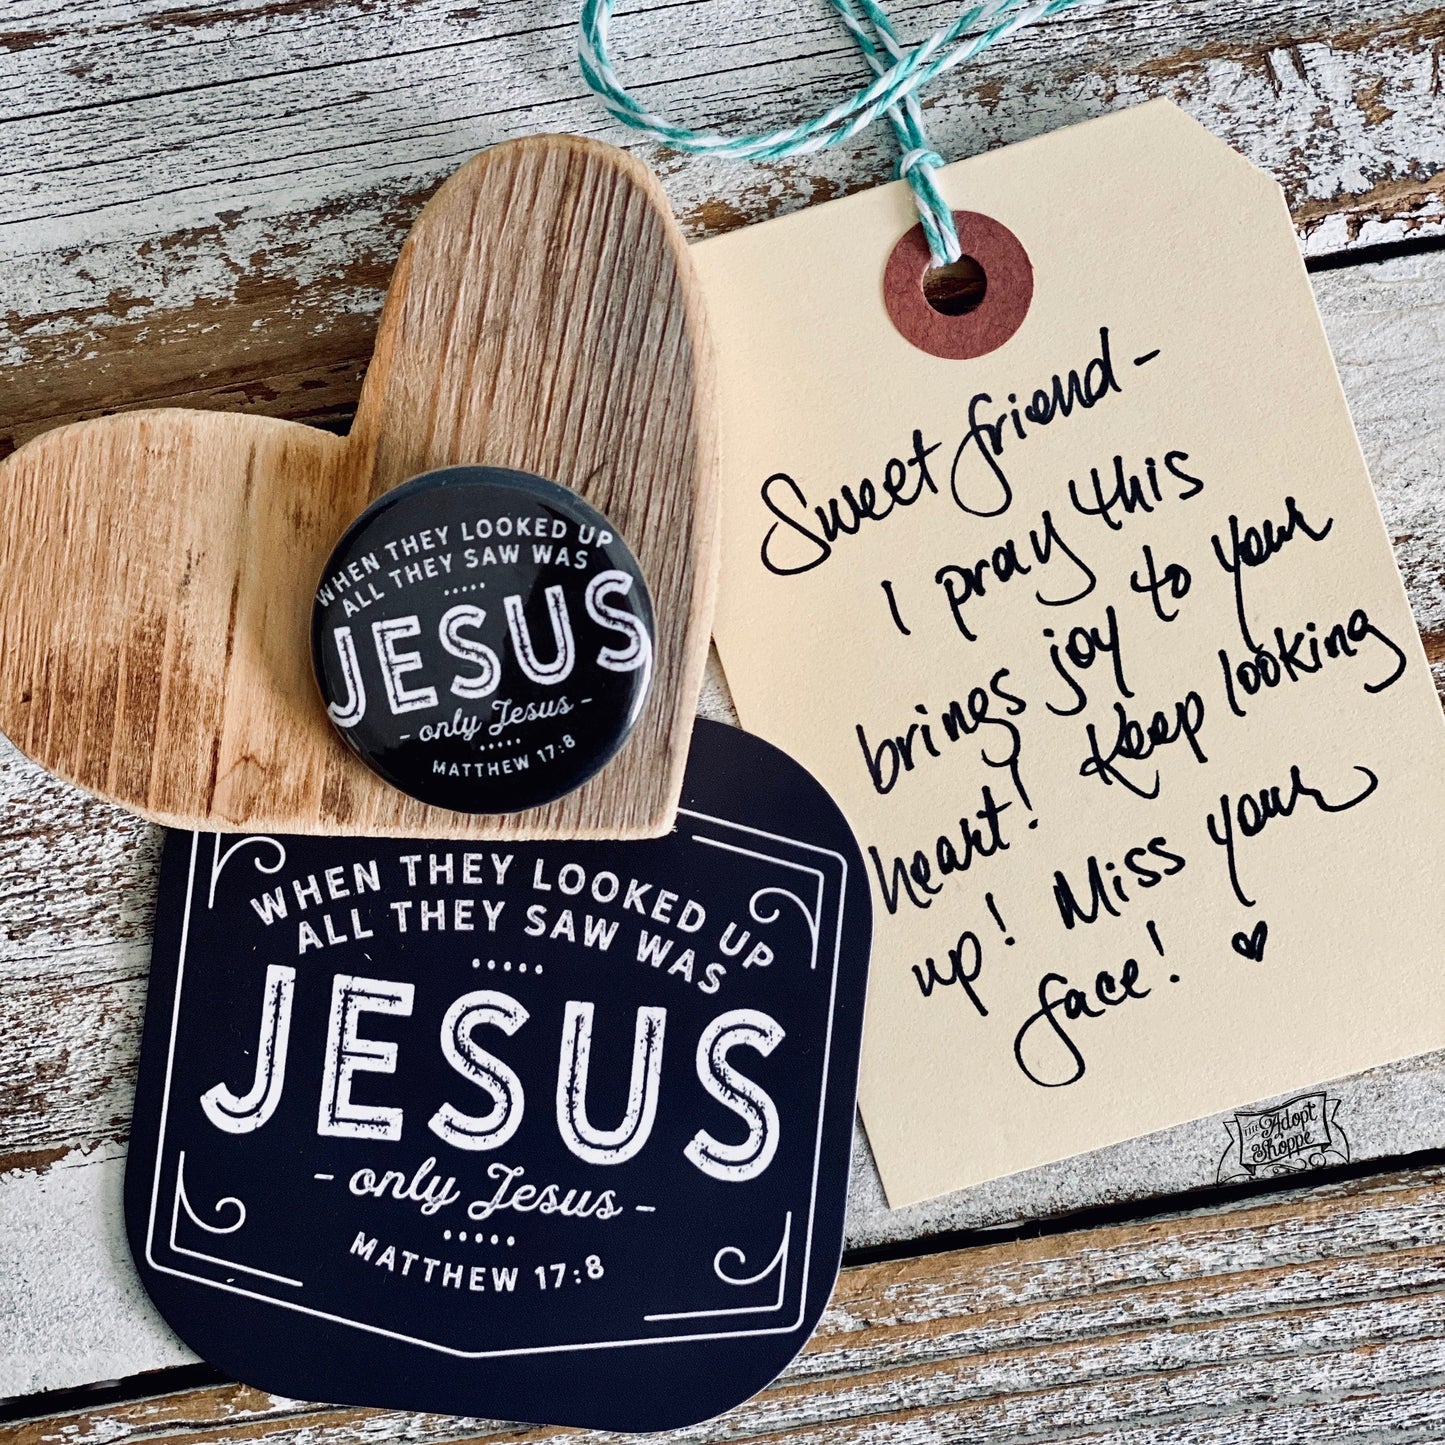 WHEN THEY LOOKED UP
ALL THEY SAW WAS
JESUS
- only Jesus -
MATTHEW 17:8
WHEN THEY LOOKED UP
ALL THEY SAW WAS
JESUS
- only Jesus -
MATTHEW 17:8
Sweet friend -
I pray this
brings joy to your
heart! Keep looking
up! Miss your
face! ♥
THE Adopt
Shoppe